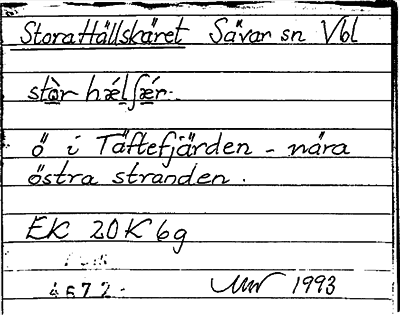 Stora Hällskäret Sävar sn Vbl
stòr hǽlʃæ̀r.
ö i Täftefjärden - nära
östra stranden.
EK 20K6g
4672.
1993